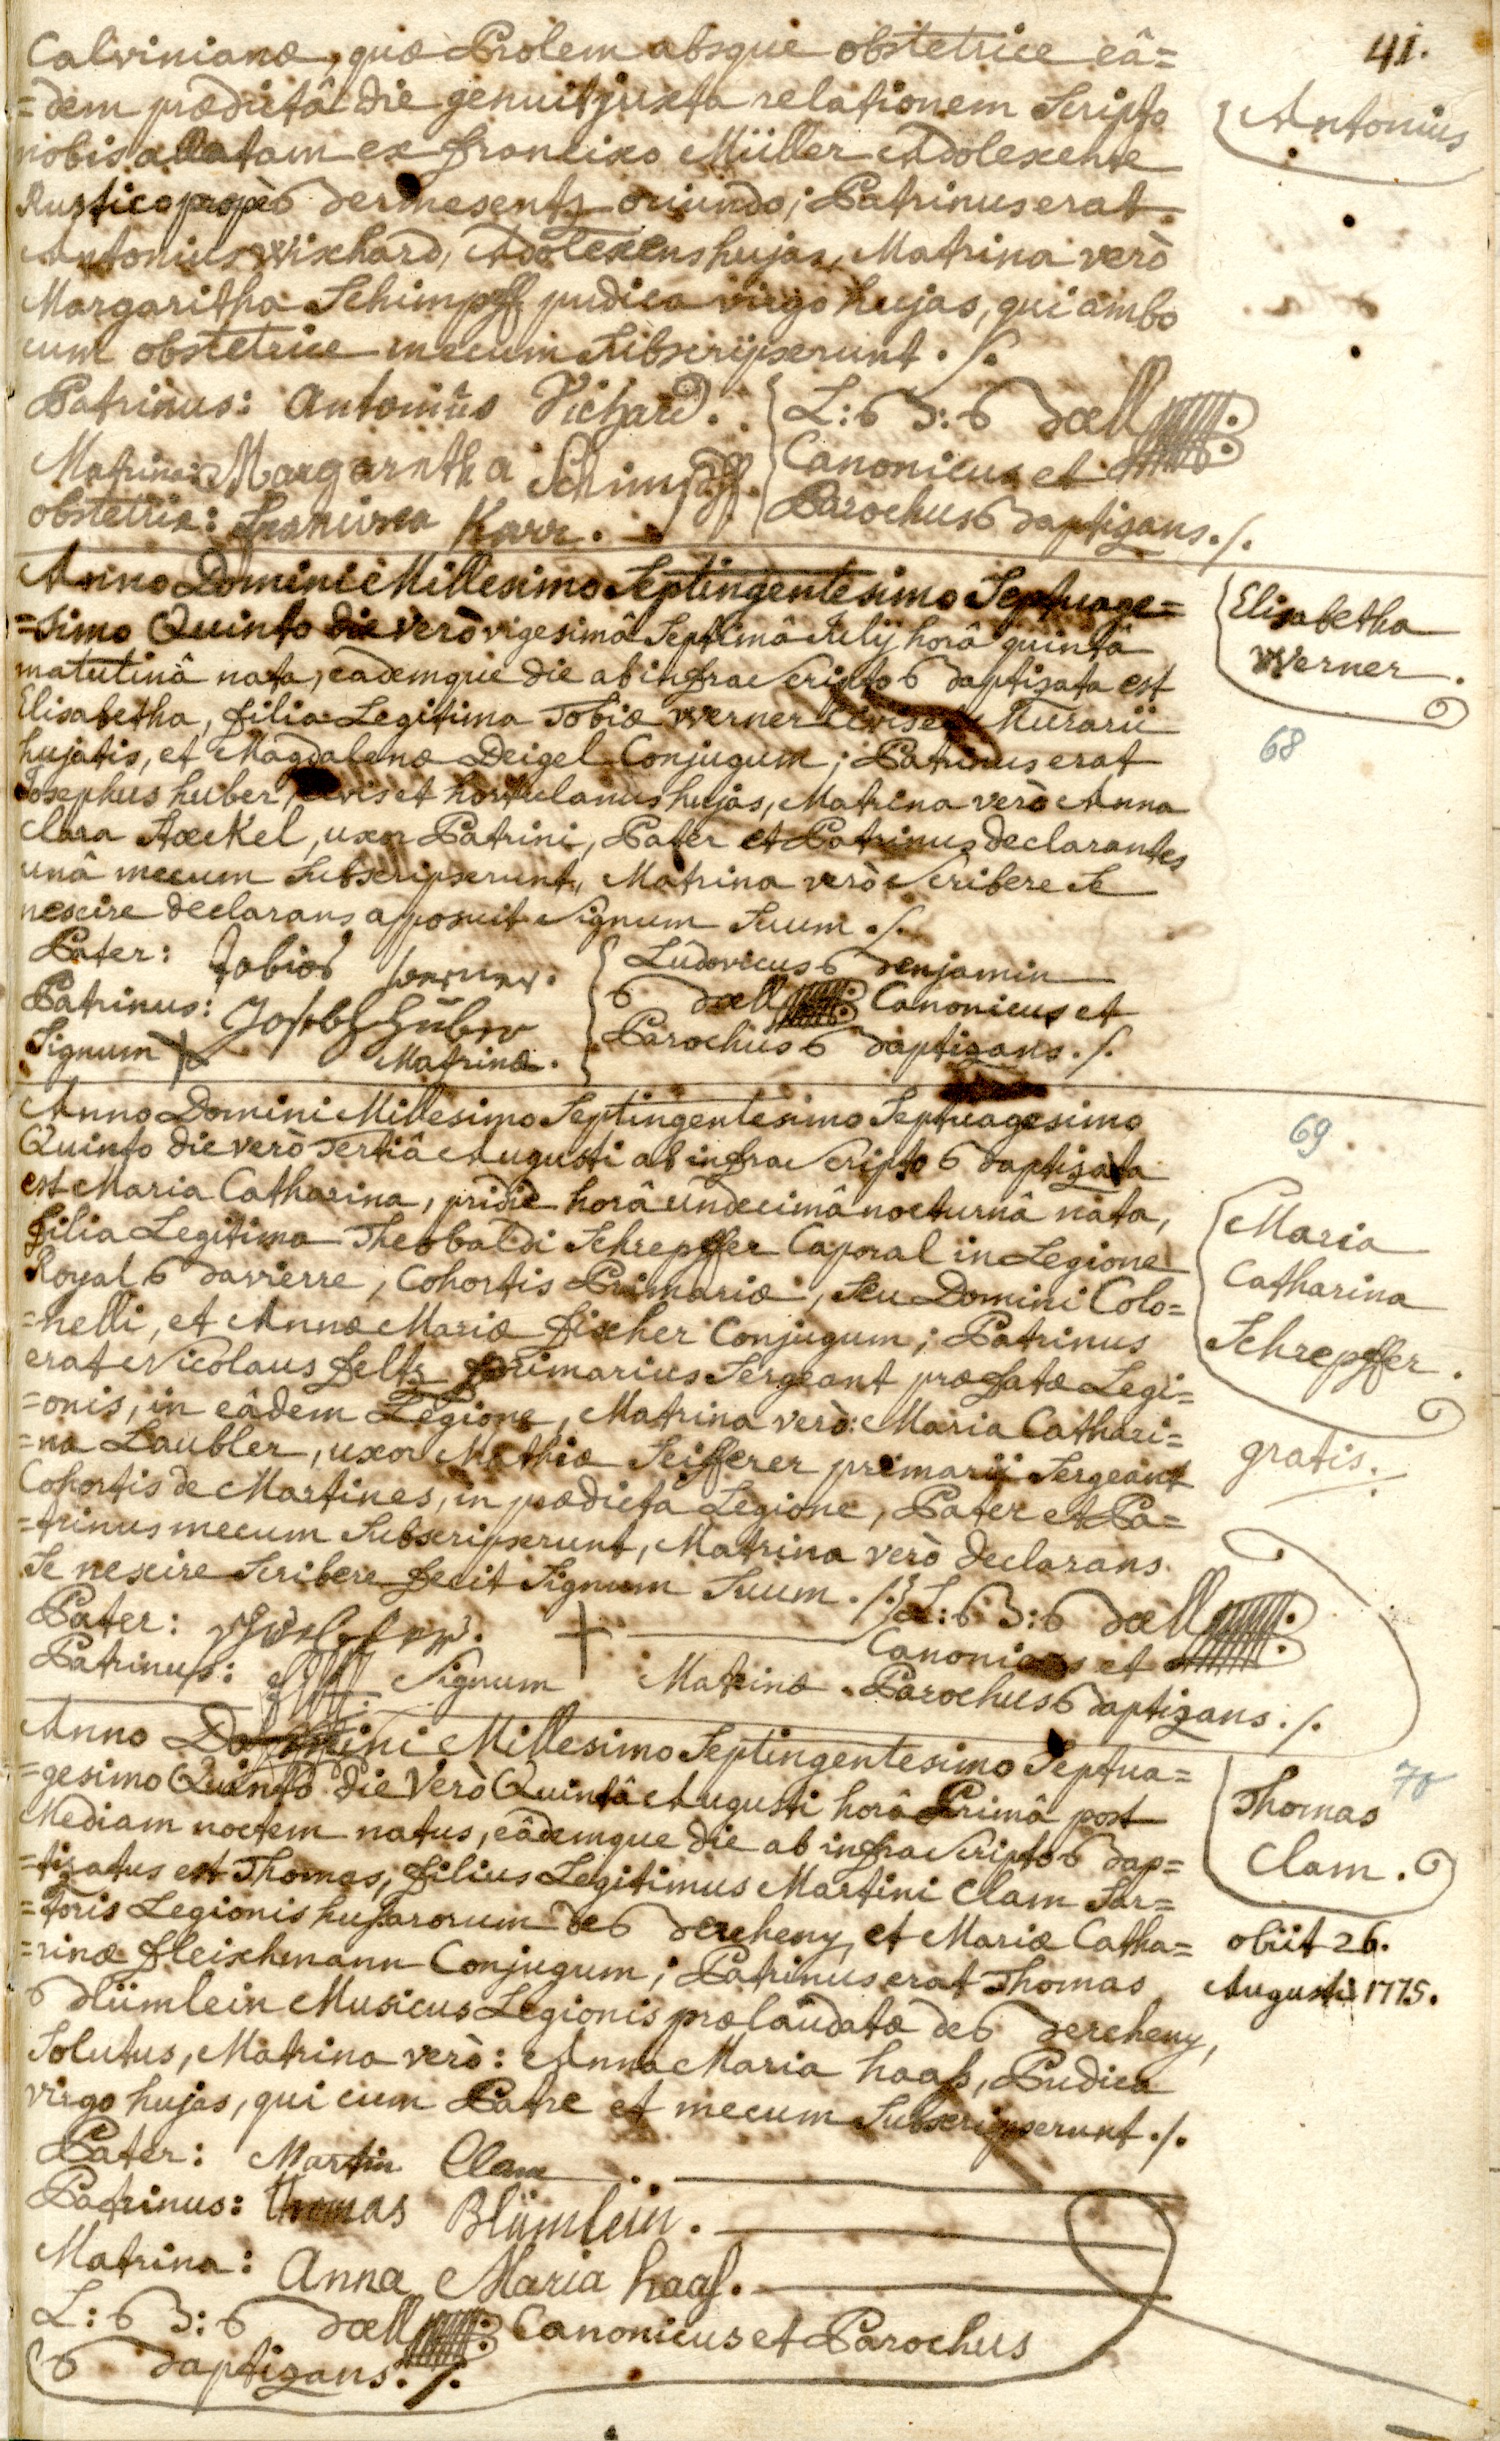 41.
Calvinianæ, quæ Prolem absque obstetrice eâ=
=dem prædictâ die genuit juxta relationem Scripto
nobis allatam ex Francisco Müller Adolescente
Rustico propè Bermesentz oriundo; Patrinus erat
Antonius Wischard, Adolescens hujas, Matrina verò
Margaritha Schimpff pudica virgo hujas, qui ambo
cum obstetrice mecum Subscripserunt ./.
Antonius
Patrinus: Antonius Vichard.
Matrina: Margaretha Schimpff.
obstetrix: Francisca Karr.
L: B: Bæll
Canonicus et
Parochus Baptizans ./.
Anno Domini Millesimo Septingentesimo Septuage=
=simo Quinto die verò vigesimâ Septimâ Julij horâ quintâ
matutinâ nata, eademque die ab infra Scripto Baptizata est
Elisabetha, filia Legitima Tobiæ Werner Civis et Murarii
hujatis, et Magdalenæ Deigel Conjugum; Patrinus erat
Josephus huber, civis et hortulanus hujas, Matrina verò Anna
Clara Stæckel, uxor Patrini, Pater et Patrinus declarantes
unâ mecum Subscripserunt, Matrina verò Scribere Se
nescire declarans apposuit Signum Suum ./.
Elisabetha
Werner.
68
Pater: Tobias Werner.
Patrinus: Joseph Huber
Signum X Matrinæ.
Ludovicus Benjamin
Bæll Canonicus et
Parochus Baptizans ./.
Anno Domini Millesimo Septingentesimo Septuagesimo
Quinto die verò Tertiâ Augusti ab infra Scripto Baptizata
est Maria Catharina, pridiè horâ undecimâ nocturnâ nata,
filia Legitima Theobaldi Schrepffer Caporal in Legione
Royal Bavierre, Cohortis Primariæ, Seu Domini Colo=
=nelli, et Annæ Mariæ Fischer Conjugum; Patrinus
erat Nicolaus Feltz primarius Sergeant præfatæ Legi=
=onis, in eâdem Legione, Matrina verò: Maria Cathari=
=na Laubler, uxor Mathiæ Seifferer primarii Sergeant
Cohortis de Martines, in prædicta Legione, Pater et Pa=
=trinus mecum Subscripserunt, Matrina verò declarans
Se nescire Scribere fecit Signum Suum ./.
69.
Maria
Catharina
Schrepffer.
gratis.
Pater:
Patrinus:
Signum + Matrinæ.
L: B: Bæll
Canonicus et
Parochus Baptizans ./.
Anno Domini Millesimo Septingentesimo Septua=
=gesimo Quinto die Verò Quintâ Augusti horâ Primâ post
Mediam noctem natus, eâdemque die ab infra Scripto Bap=
=tizatus est Thomas, filius Legitimus Martini Clam Sar=
=toris Legionis husarorum de Bercheny, et Mariæ Catha=
=rinæ Fleischmann Conjugum; Patrinus erat Thomas
Blümlein Musicus Legionis prælaudatæ de Bercheny,
Solutus, Matrina verò: Anna Maria haas, Pudica
virgo hujas, qui cum Patre et mecum Subscripserunt ./.
70
Thomas
Clam.
obiit 26.
Augusti 1775.
Pater: Martin Clam
Patrinus: Thomas Blümlein.
Matrina: Anna Maria haas.
L: B: Bæll Canonicus et Parochus
Baptizans ./.